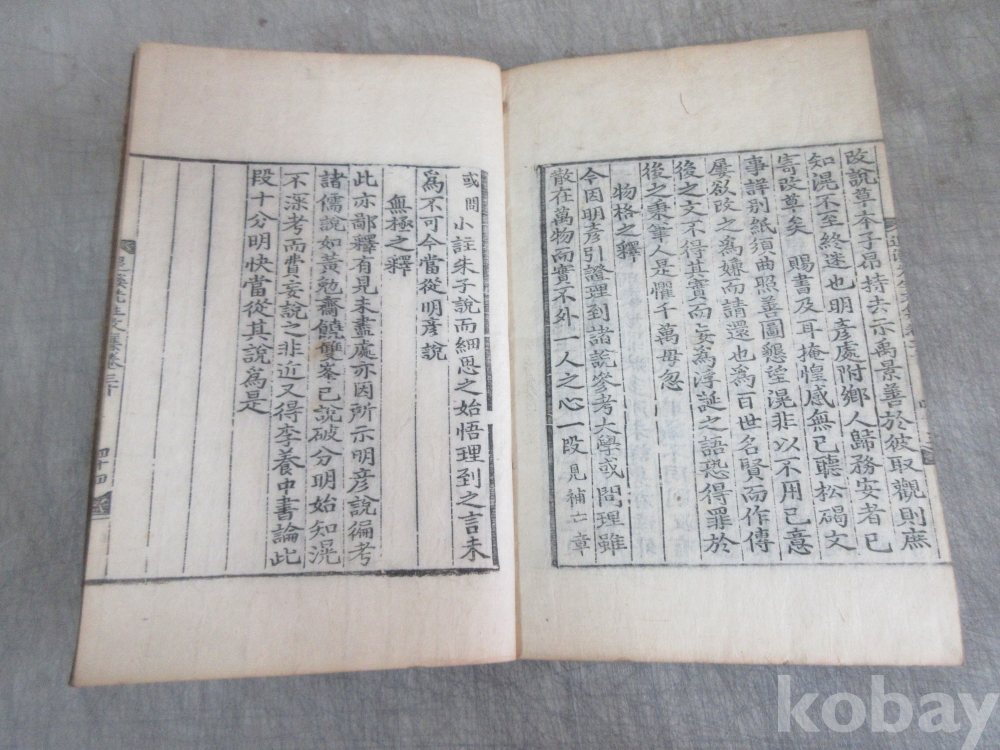 改說草本子昂持去示禹景善於彼取觀則庶
知滉不至終迷也明彦處附鄉人歸務安者已
寄改草矣 賜書及耳掩惶感無已聽松碣文
事詳別紙須曲照善圖懇望滉非以不用已意
屢欲改之爲嫌而請還也爲百世名賢而作傳
後之文不得其實而妄爲浮誕之語恐得罪於
後之秉筆人是懼千萬毋忽
物格之釋
今因明彦引證理到諸說參考大學或問理雖
散在萬物而實不外一人之心一段見補亡章
或問小註朱子說而細思之始悟理到之言未
爲不可今當從明彦說
無極之釋
此亦鄙釋有見未盡處亦因所示明彦說徧考
諸儒說如黃勉齋饒雙峯已說破分明始知滉
不深考而費妄說之非近又得李養中書論此
段十分明快當從其說爲是
退溪先生文集卷三十
四十四
kobay